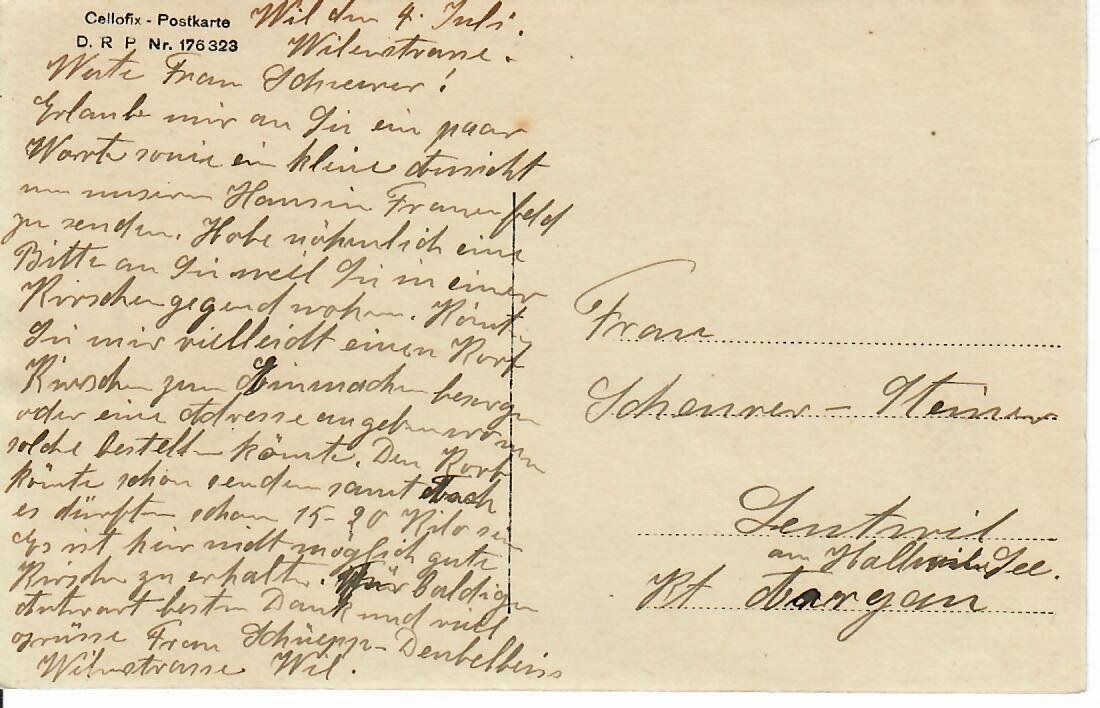 Cellofix - Postkarte
D. R. P. Nr. 176323
Wil den 4. Juli.
Wilerstrasse.
Werte Frau Scheurer!
Erlaube mir an Sie ein paar
Worte sowie ein kleine Ansicht
von unserm Haus in Frauenfeld
zu senden. Habe nähmlich eine
Bitte an Sie weil Sie in einer
Kirschengegend wohnen. Könt
Sie mir vielleicht einen Korb
Kirschen zum Einmachen besorgen
oder eine Adresse angeben wo man
solche bestellen könte. Den Korb
könte schon senden samt
es dürften schon 15-20 Kilo sein
Es ist hier nicht möglich gute
Kirschen zu erhalten. Für baldige
Antwort besten Dank und viel
grüsse Frau Schüepp-Deubelbeiss
Wilerstrasse Wil.
Frau
Scheurer - Steiner
Sentwil
am Hallwiler See.
Kt Aargau